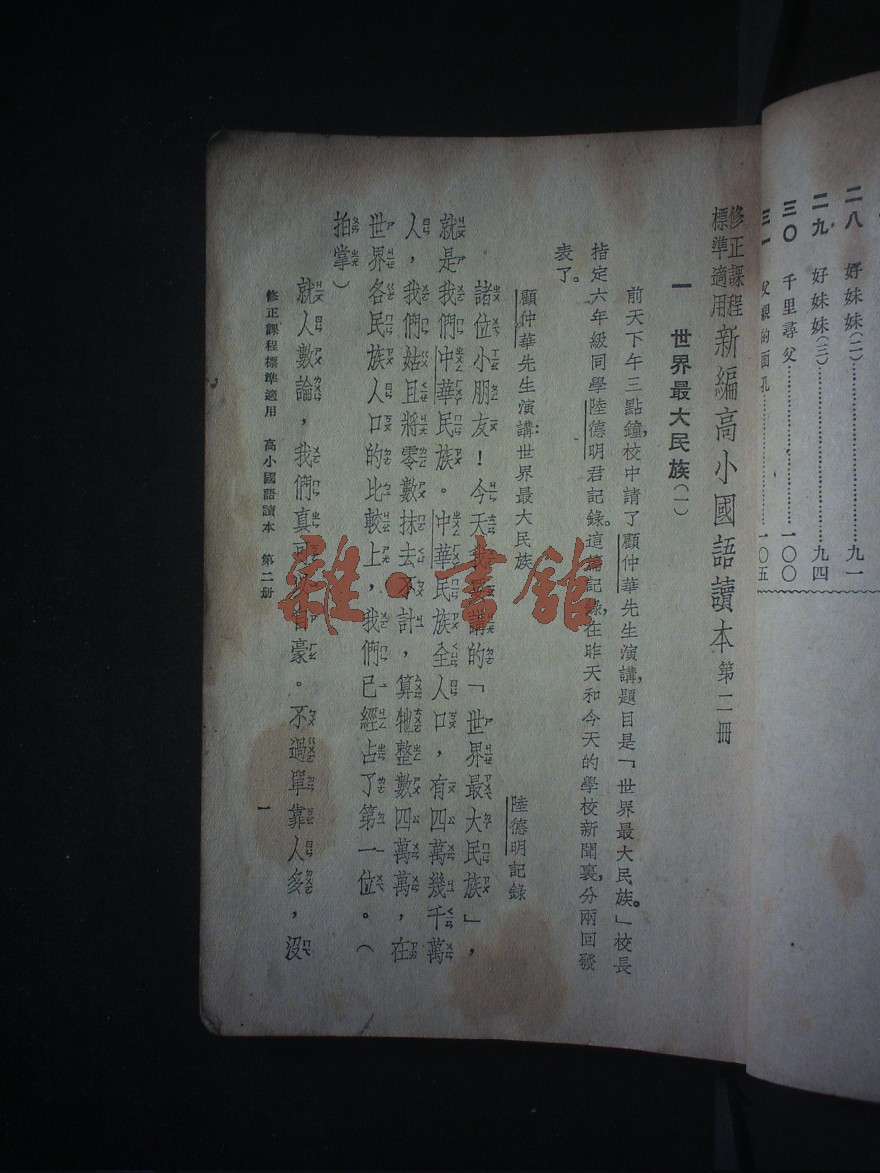 二八　好妹妹(二)………………九一
二九　好妹妹(三)………………九四
三〇　千里尋父………………一〇〇
三一　父親的面孔………………一〇五
修正課程標準適用　新編高小國語讀本　第二冊
一　世界最大民族(一)
前天下午三點鐘,校中請了顧仲華先生演講,題目是「世界最大民族。」校長
指定六年級同學陸德明君記錄。這篇記錄,在昨天和今天的學校新聞裏,分兩回發
表了。
顧仲華先生演講:世界最大民族
陸德明記錄
諸位小朋友!今天我講的「世界最大民族」,
就是我們中華民族。中華民族全人口,有四萬幾千萬
人,我們姑且將零數抹去不計,算牠整數四萬萬,在
世界各民族人口的比較上,我們已經占了第一位。(
拍掌)
就人數論,我們真可自豪。不過單靠人多,沒
修正課程標準適用　高小國語讀本　第二册
一
雜·書館